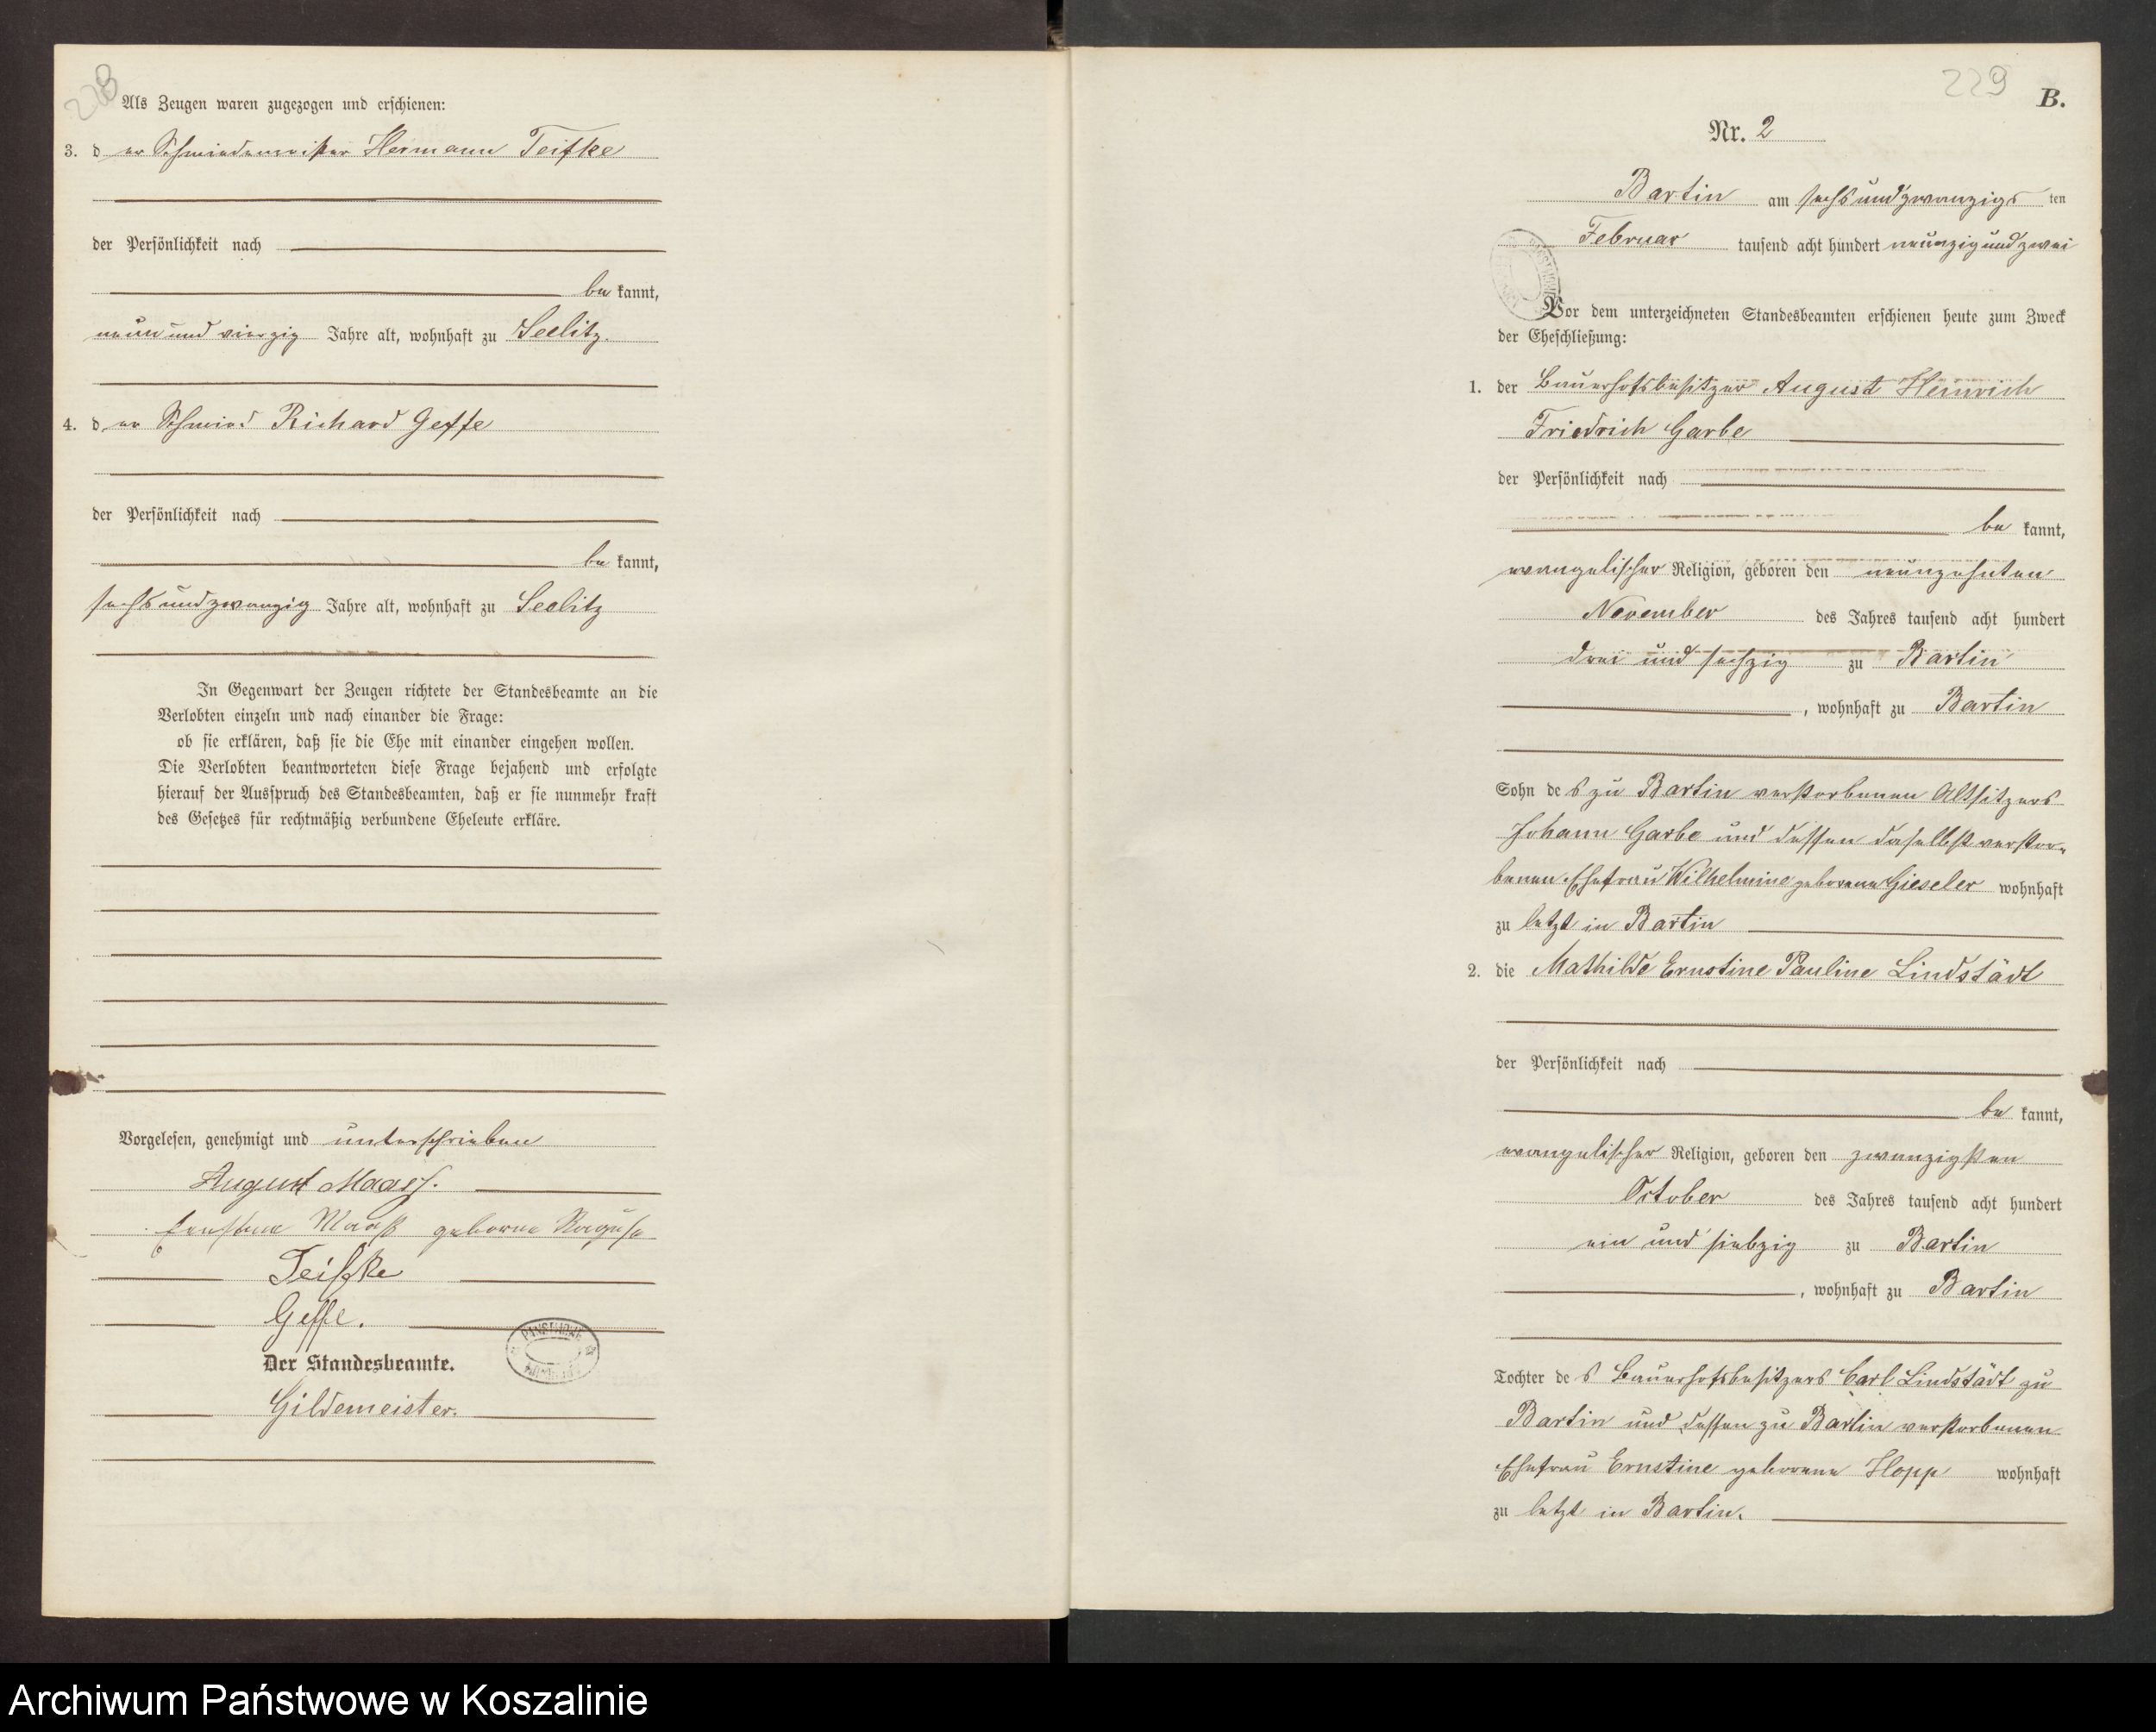 228
Als Zeugen waren zugezogen und erschienen:
3. der Schmiedemeister Hermann Teifke
der Persönlichkeit nach
be kannt,
neun und vierzig Jahre alt, wohnhaft zu Seelitz.
4. der Schmied Richard Geffe
der Persönlichkeit nach
be kannt,
sechs und zwanzig Jahre alt, wohnhaft zu Seelitz
In Gegenwart der Zeugen richtete der Standesbeamte an die
Verlobten einzeln und nach einander die Frage:
ob sie erklären, daß sie die Ehe mit einander eingehen wollen.
Die Verlobten beantworteten diese Frage bejahend und erfolgte
hierauf der Ausspruch des Standesbeamten, daß er sie nunmehr kraft
des Gesetzes für rechtmäßig verbundene Eheleute erkläre.
Vorgelesen, genehmigt und unterschrieben
August Maass.
Ernstine Maaß geborne
Teifke
Geffe.
Der Standesbeamte.
Gildemeister.
229
B.
Nr. 2
Bartin am sechs und zwanzigs ten
Februar tausend acht hundert neunzig und zwei
Vor dem unterzeichneten Standesbeamten erschienen heute zum Zweck
der Eheschließung:
1. der Bauerhofsbesitzer August Heinrich
Friedrich Garbe
der Persönlichkeit nach
be kannt,
evangelischer Religion, geboren den neunzehnten
November des Jahres tausend acht hundert
drei und sechzig zu Bartin
, wohnhaft zu Bartin
Sohn des zu Bartin verstorbenen Altsitzers
Johann Garbe und dessen daselbst verstor-
benen Ehefrau Wilhelmine geborene Gieseler wohnhaft
zu letzt in Bartin
2. die Mathilde Ernstine Pauline Lindstädt
der Persönlichkeit nach
be kannt,
evangelischer Religion, geboren den zwanzigsten
October des Jahres tausend acht hundert
ein und siebzig zu Bartin
, wohnhaft zu Bartin
Tochter des Bauerhofsbesitzers Carl Lindstädt zu
Bartin und dessen zu Bartin verstorbenen
Ehefrau Ernstine geborene Hopp wohnhaft
zu letzt in Bartin.
Archiwum Państwowe w Koszalinie